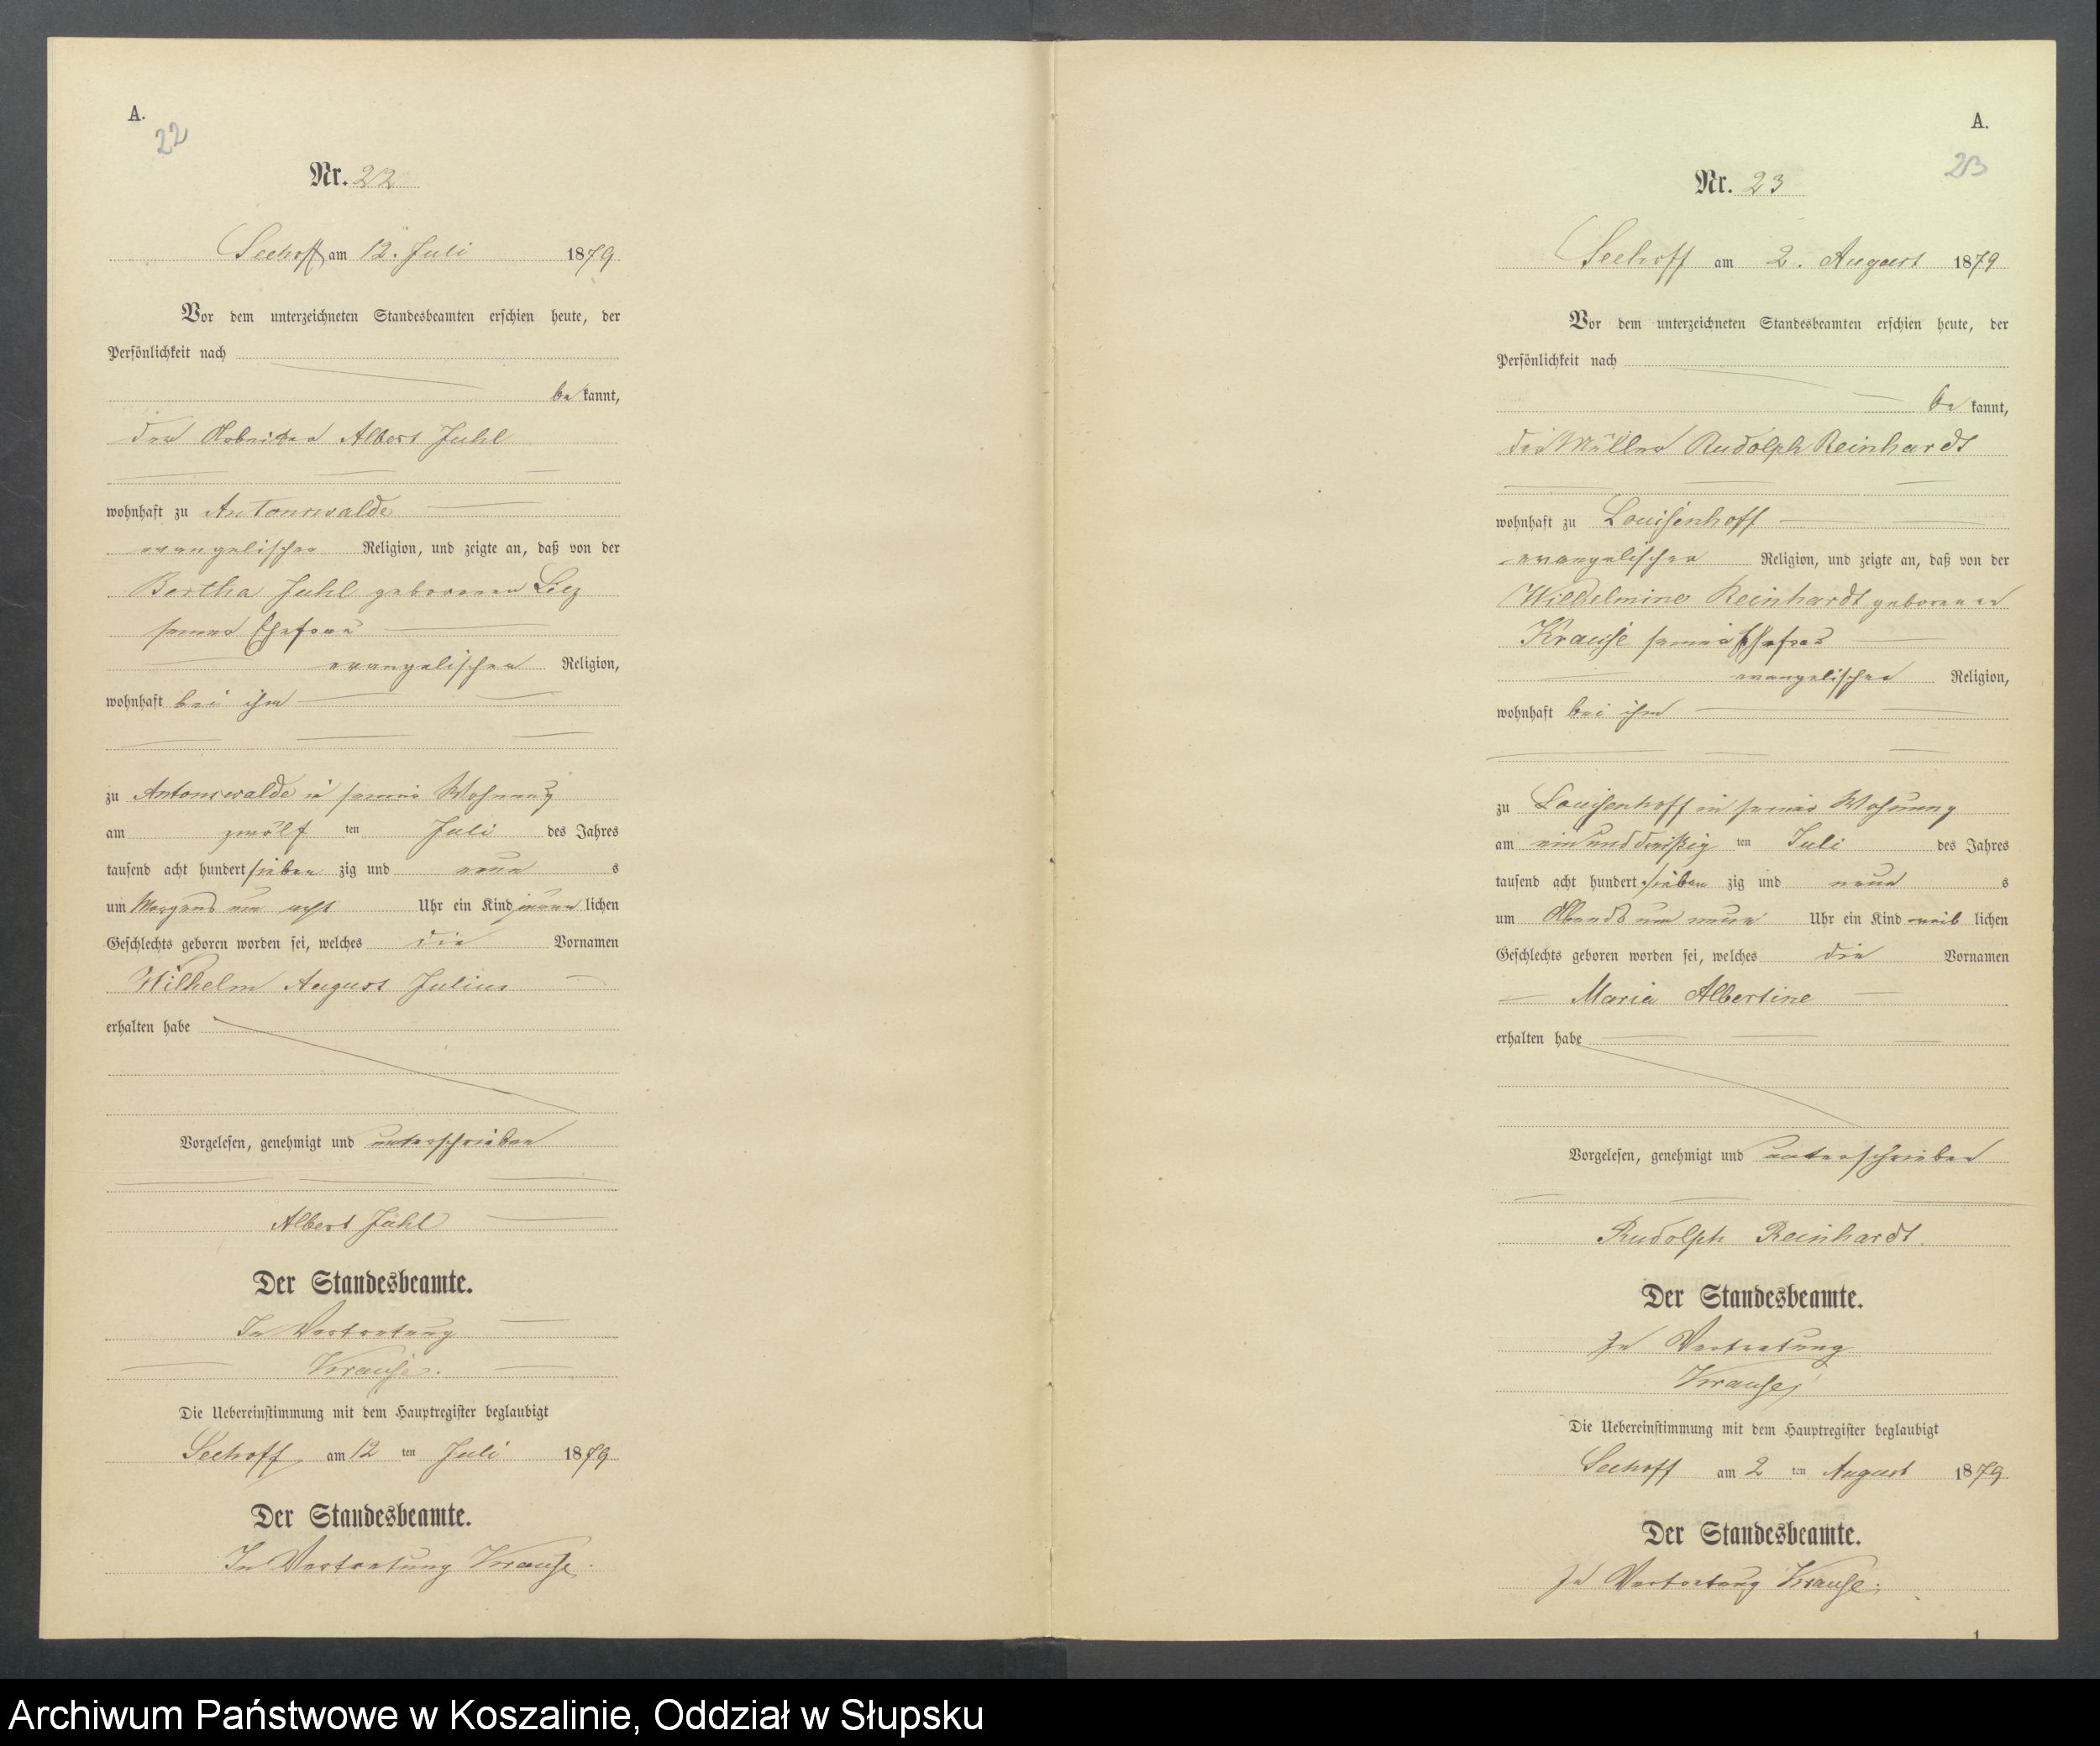 A.
22
Nr. 22
Seehoff am 12. Juli 1879
Vor dem unterzeichneten Standesbeamten erschien heute, der
Persönlichkeit nach
be kannt,
der Arbeiter Albert Juhl
wohnhaft zu Antonswalde
evangelischer Religion, und zeigte an, daß von der
Bertha Juhl geborenen
seiner Ehefrau
evangelischen Religion,
wohnhaft bei ihm
zu Antonswalde in seiner Wohnung
am zwölf ten Juli des Jahres
tausend acht hundert sieben zig und neun s
um Morgens um acht Uhr ein Kind männ lichen
Geschlechts geboren worden sei, welches die Vornamen
Wilhelm August Julius
erhalten habe
Vorgelesen, genehmigt und unterschrieben
Albert Juhl
Der Standesbeamte.
In Vertretung
Krause.
Die Uebereinstimmung mit dem Hauptregister beglaubigt
Seehoff am 12 ten Juli 1879
Der Standesbeamte.
In Vertretung Krause.
A.
23
Nr. 23
Seehoff am 2. August 1879
Vor dem unterzeichneten Standesbeamten erschien heute, der
Persönlichkeit nach
be kannt,
der Müller Rudolph Reinhardt
wohnhaft zu Louisenhoff
evangelischer Religion, und zeigte an, daß von der
Wilhelmine Reinhardt geborenen
Krause seiner Ehefrau
evangelischer Religion,
wohnhaft bei ihm
zu Louisenhoff in seiner Wohnung
am einunddreißig ten Juli des Jahres
tausend acht hundert sieben zig und neun s
um Abends um neun Uhr ein Kind weib lichen
Geschlechts geboren worden sei, welches die Vornamen
Maria Albertine
erhalten habe
Vorgelesen, genehmigt und unterschrieben
Rudolph Reinhardt.
Der Standesbeamte.
In Vertretung
Krause
Die Uebereinstimmung mit dem Hauptregister beglaubigt
Seehoff am 2 ten August 1879
Der Standesbeamte.
In Vertretung Krause.
1
Archiwum Państwowe w Koszalinie, Oddział w Słupsku